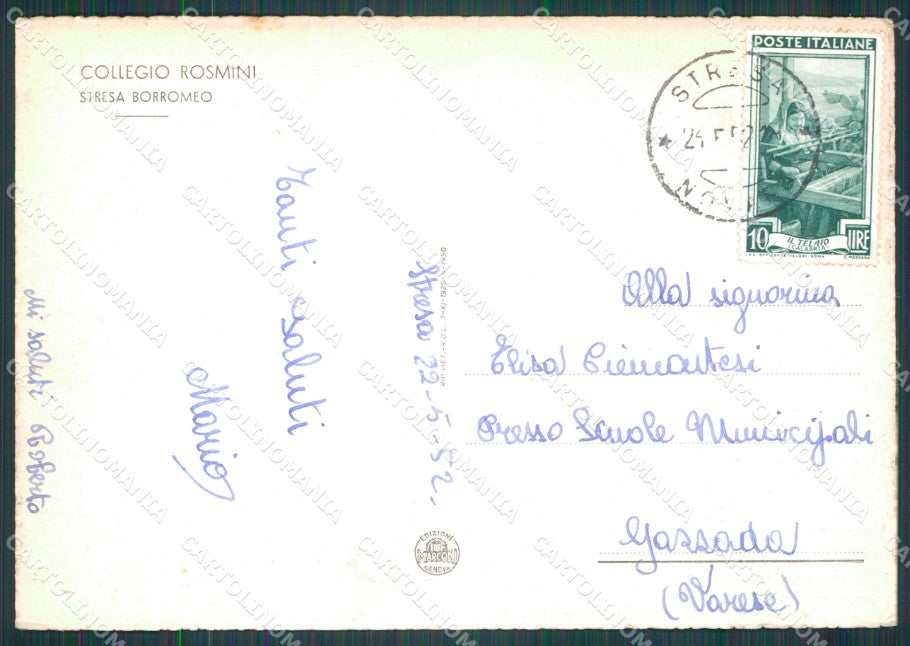 COLLEGIO ROSMINI
STRESA BORROMEO
POSTE ITALIANE
STRESA
10 LIRE
IL TELAIO
CALABRIA
Tanti saluti
Mario
Mi saluti Roberto
Stresa 22-5-52.
Alla signorina
Elisa Piemontesi
Presso Scuole Municipali
Gazzada
(Varese)
EDIZIONI
MARCONI
GENOVA
CARTOLINOMANIA